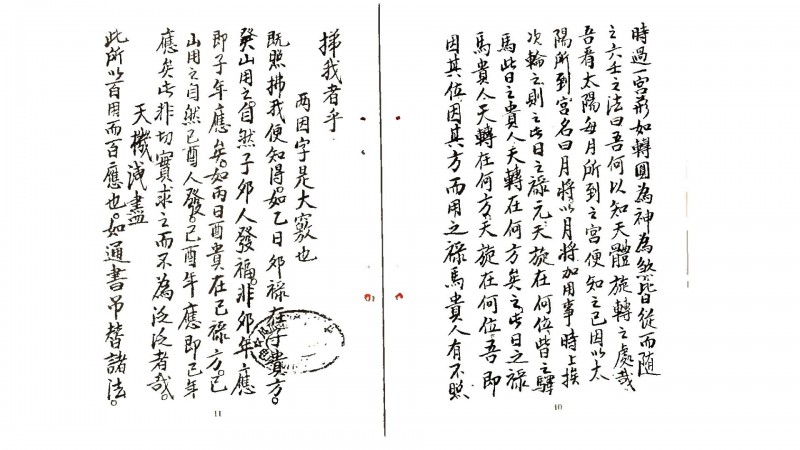 時過一宮形如轉圓為神為煞昆日從而隨
之六壬之法曰吾何以知天體旋轉之處哉
吾看太陽每月所到之宮便知之已因以太
陽所到宮名曰月將以月將加用事時上挨
次輪之則之此日之祿元天旋在何位皆之驛
馬此日之貴人天轉在何方矣之此日之祿
馬貴人天轉在何方天旋在何位吾即
因其位因其方而用之祿馬貴人有不照
10
挮我者乎
两因字是大竅也
既照拂我便知得如乙日卯祿在子貴方。
癸山用之自然子卯人發福。非卯年應
即子年應矣。如丙日酉貴在己祿方。已
山用之自然己酉人發。己酉年應即己年
應矣此非切實求之而不為泛泛者哉。
天機洩盡
此所以百用而百應也。如通書吊替諸法。
11